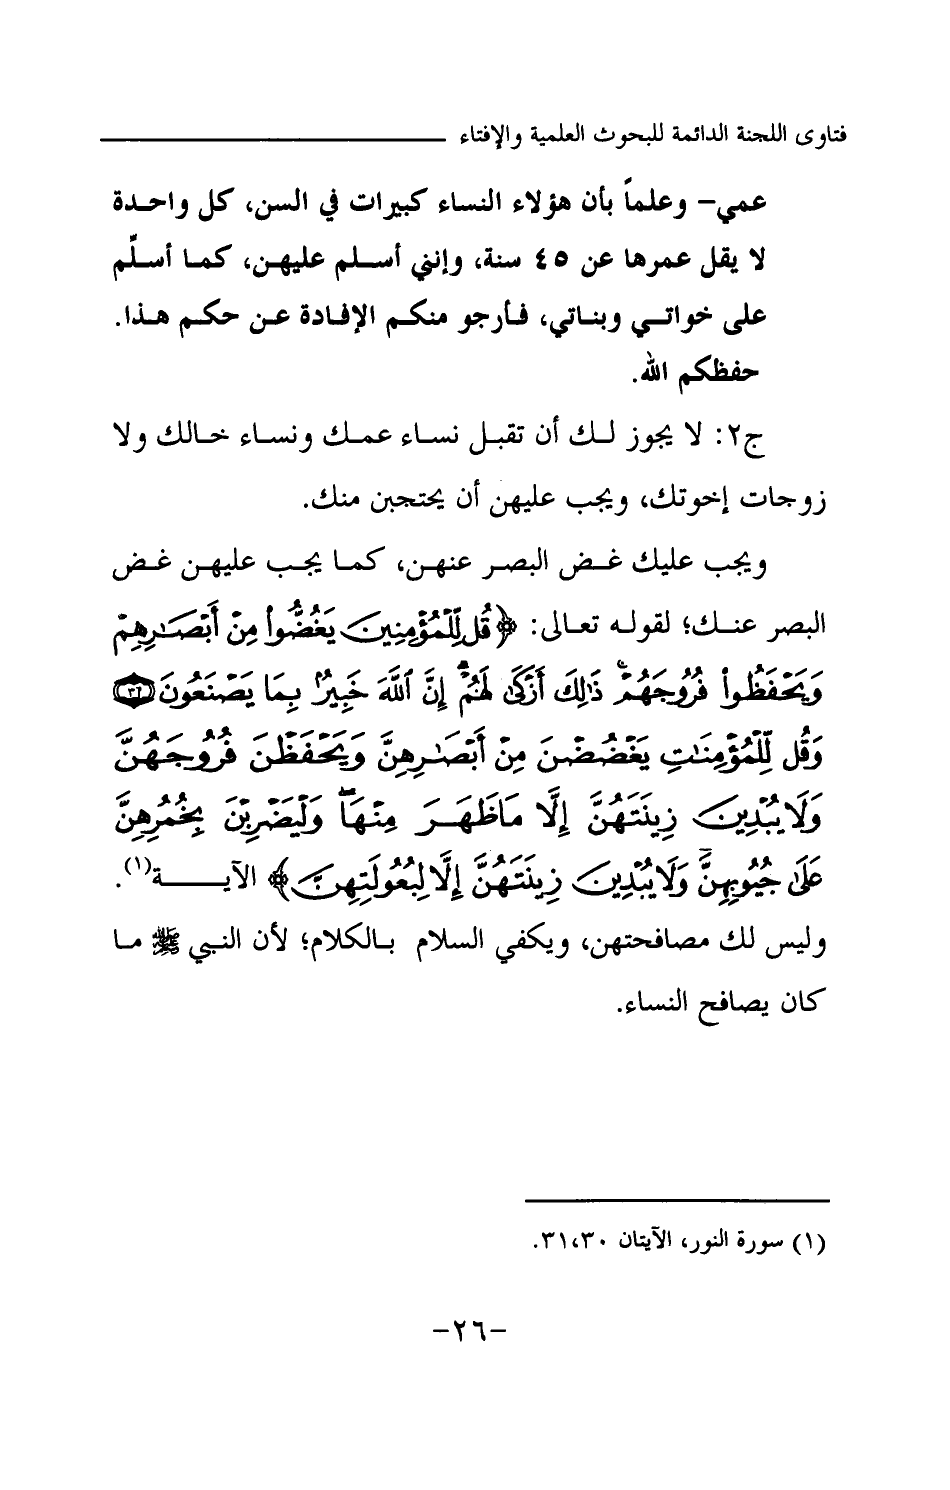 فتاوى اللجنة الدائمة للبحوث العلمية والإفتاء
عمي- وعلماً بأن هؤلاء النساء كبيرات في السن، كل واحدة
لا يقل عمرها عن ٤٥ سنة، وإنني أسلم عليهن، كما أسلّم
على خواتي وبناتي، فأرجو منكم الإفادة عن حكم هذا.
حفظكم الله.
ج٢: لا يجوز لك أن تقبل نساء عمك ونساء خالك ولا
زوجات إخوتك، ويجب عليهن أن يحتجبن منك.
ويجب عليك غض البصر عنهن، كما يجب عليهن غض
البصر عنك؛ لقوله تعالى: ﴿قُل لِّلْمُؤْمِنِينَ يَغُضُّوا۟ مِنْ أَبْصَـٰرِهِمْ
وَيَحْفَظُوا۟ فُرُوجَهُمْ ۚ ذَٰلِكَ أَزْكَىٰ لَهُمْ ۗ إِنَّ ٱللَّهَ خَبِيرٌۢ بِمَا يَصْنَعُونَ ٣٠
وَقُل لِّلْمُؤْمِنَـٰتِ يَغْضُضْنَ مِنْ أَبْصَـٰرِهِنَّ وَيَحْفَظْنَ فُرُوجَهُنَّ
وَلَا يُبْدِينَ زِينَتَهُنَّ إِلَّا مَا ظَهَرَ مِنْهَا ۖ وَلْيَضْرِبْنَ بِخُمُرِهِنَّ
عَلَىٰ جُيُوبِهِنَّ ۖ وَلَا يُبْدِينَ زِينَتَهُنَّ إِلَّا لِبُعُولَتِهِنَّ﴾ الآية(١).
وليس لك مصافحتهن، ويكفي السلام بالكلام؛ لأن النبي ﷺ ما
كان يصافح النساء.
(١) سورة النور، الآيتان ٣٠،٣١.
-٢٦-